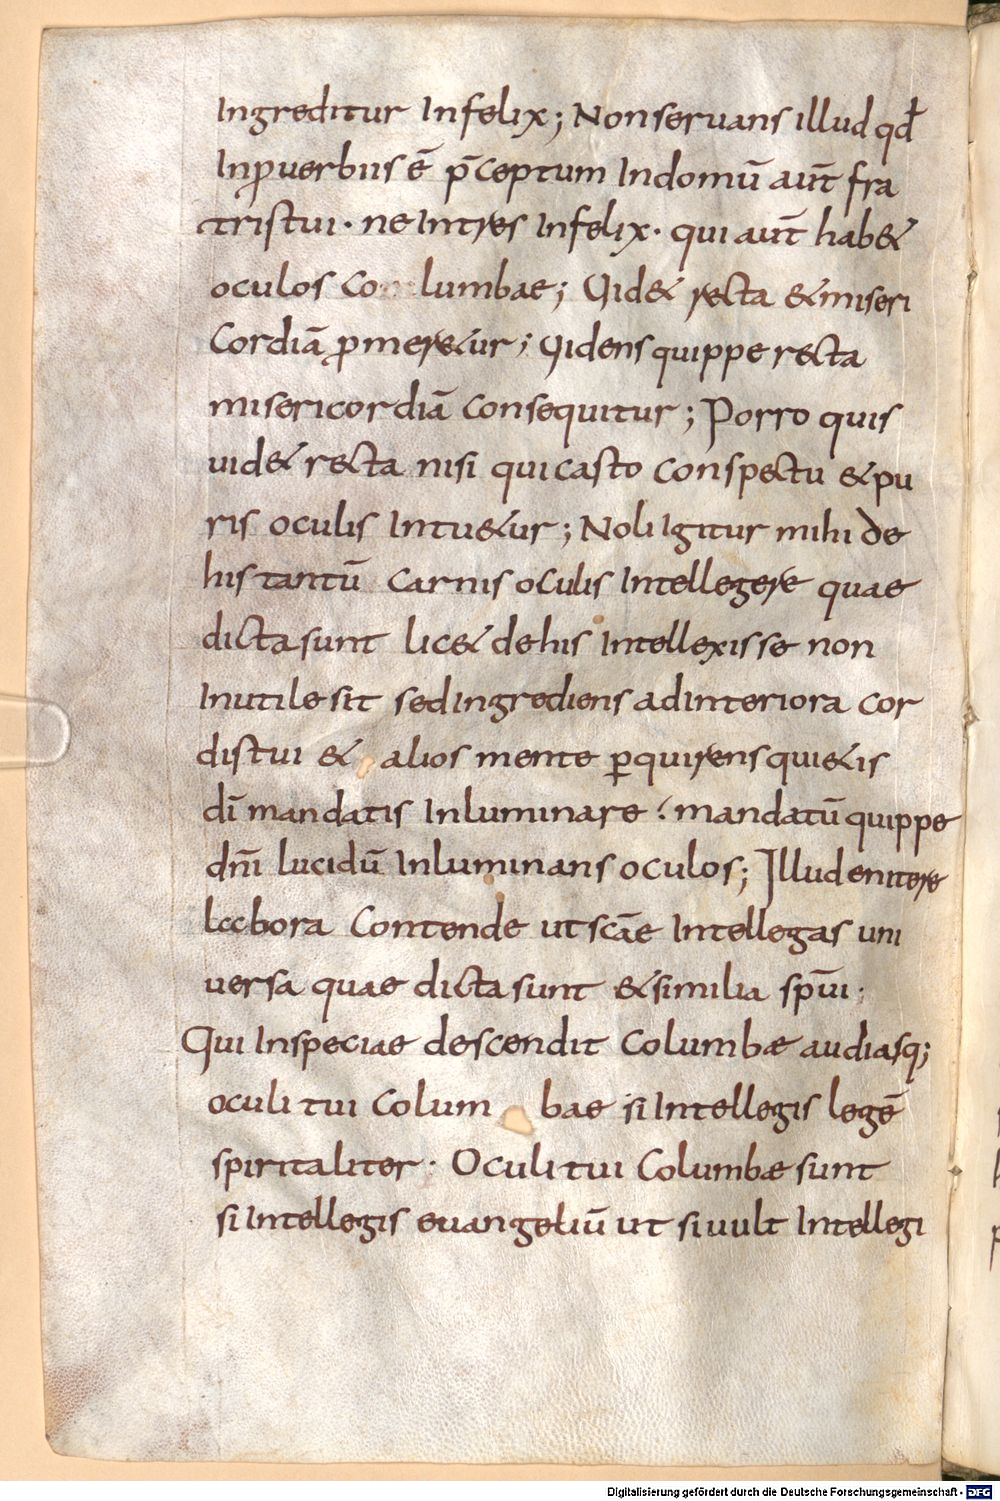 Ingreditur Infelix; Non seruans illud qđ
Inꝓuerbiis ē p̄ceptum Indomū aūt fra
tris tui · ne Intres Infelix · qui aūt hab&
oculos Co lumbae; Uid& recta & miseri
Cordiā ꝓmer&ur; Uidens quippe recta
misericordiā Consequitur; Porro quis
uid& recta nisi qui casto Conspectu & pu
ris oculis Intu&ur; Noli Igitur mihi de
his tantū Carnis oculis Intellegere quae
dicta sunt lic& de his Intellexisse non
Inutile sit sed Ingrediens ad Interiora Cor
dis tui & alios mente ꝑquirens qui&is
dī mandatis Inluminare · mandatū quippe
dn̄i lucidū Inluminans oculos; Illud enitere
labora Contende ut scāe Intellegas uni
uersa quae dicta sunt & similia sp̄ui ·
Qui Inspeciae descendit Columbae audiasq;
oculi tui Colum bae si Intellegis legē
spiritaliter · Oculi tui Columbae sunt
si Intellegis euangeliū ut si uult Intellegi
Digitalisierung gefördert durch die Deutsche Forschungsgemeinschaft - DFG